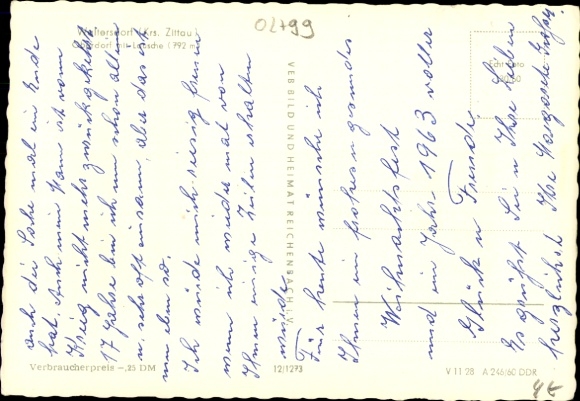 Waltersdorf (Krs. Zittau)
Oberdorf mit Lausche (792 m)
02499
VEB BILD UND HEIMAT REICHENBACH i. V.
Echt Foto
Verbraucherpreis -,25 DM
12/1273
V 11 28 A 246/60 DDR
auch die Sache mal ein Ende
hat. Auch mein Mann ist vom
Krieg nicht mehr zurückgekehrt
17 Jahre bin ich nun schon allein
u. sehr oft einsam, aber das ist
nun eben so.
Ich würde mich riesig freuen
wenn ich wieder mal von
Ihnen einige Zeilen erhalten
würde.
Für heute wünsche ich
Ihnen ein frohes u. gesundes
Weihnachtsfest
und ein Jahr 1963 voller
Glück u. Freude
Es grüßt Sie u. Ihre Lieben
herzlichst Ihre Margarete